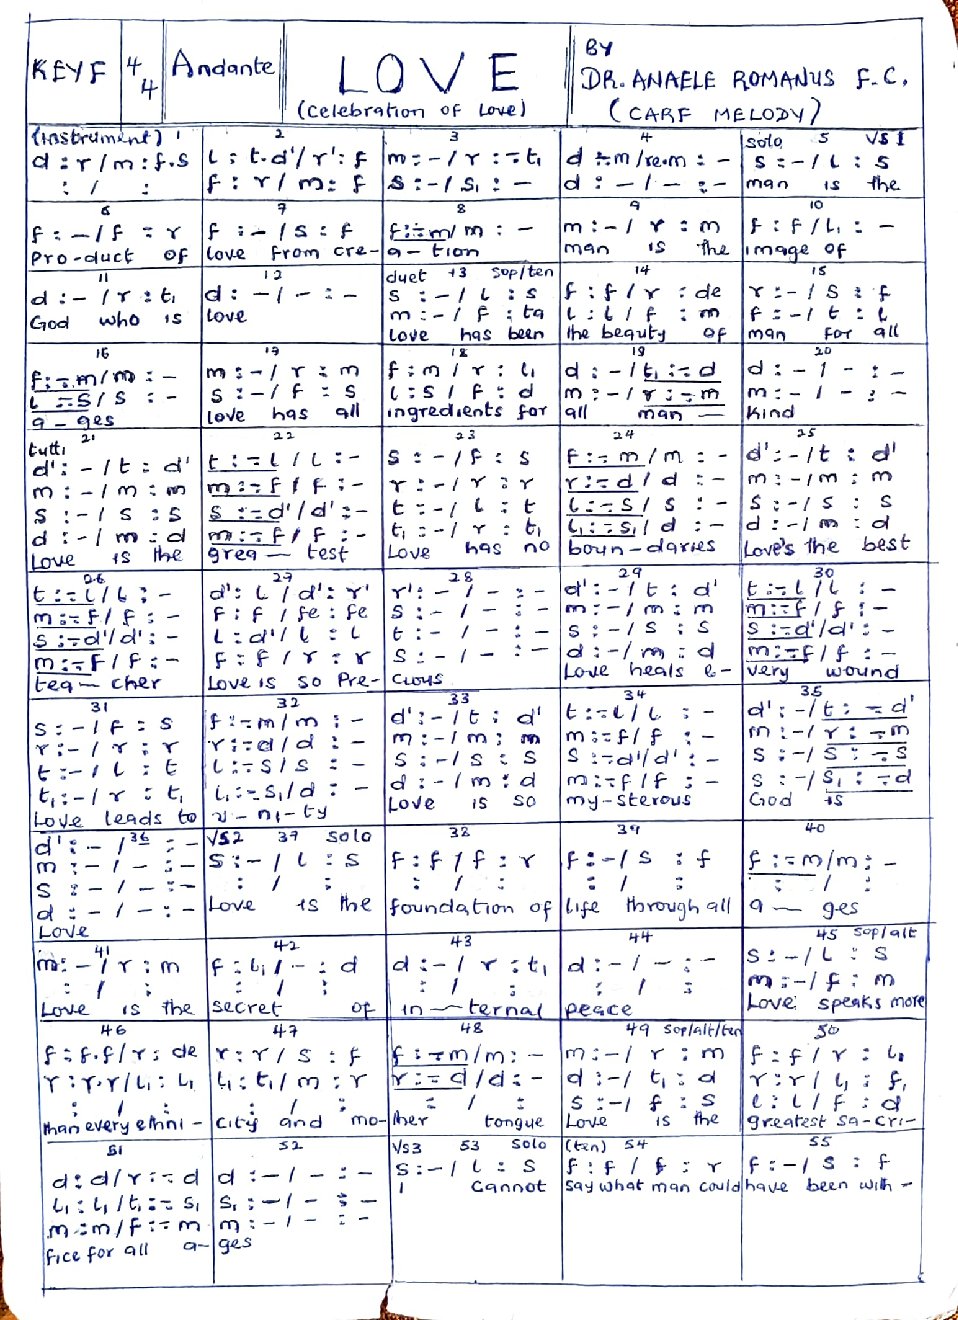 KEY F
4
4
Andante
LOVE
(Celebration of Love)
BY
DR. ANAELE ROMANUS F.C.
(CARF MELODY)
(Instrument) 1
d : r / m : f.s
: / :
2
l : t.d' / r' : f
f : r / m : f
3
m : - / r : -: t₁
s : - / s₁ : -
4
d :-m / re.m : -
d : - / - : -
solo 5 VS1
s : - / l : s
man is the
6
f : - / f : r
Pro-duct of
7
f : - / s : f
love from cre-
8
f :-: m / m : -
a - tion
9
m : - / r : m
man is the
10
f : f / l₁ : -
image of
11
d : - / r : t₁
God who is
12
d : - / - : -
love
duet 13 Sop/ten
s : - / l : s
m : - / f : ta
Love has been
14
f : f / r : de
l : l / f : m
the beauty of
15
r : - / s : f
f : - / t : l
man for all
16
f :-: m / m : -
l :-: s / s : -
a - ges
17
m : - / r : m
s : - / f : s
love has all
18
f : m / r : l₁
l : s / f : d
ingredients for
19
d : - / t₁ :-: d
m : - / r :-: m
all man —
20
d : - / - : -
m : - / - : -
kind
tutti 21
d' : - / t : d'
m : - / m : m
s : - / s : s
d : - / m : d
Love is the
22
t :-: l / l : -
m :-: f / f : -
s :-: d' / d' : -
m :-: f / f : -
grea — test
23
s : - / f : s
r : - / r : r
t : - / l : t
t₁ : - / r : t₁
Love has no
24
f :-: m / m : -
r :-: d / d : -
l :-: s / s : -
l₁ :-: s₁ / d : -
boun - daries
25
d' : - / t : d'
m : - / m : m
s : - / s : s
d : - / m : d
Love's the best
26
t :-: l / l : -
m :-: f / f : -
s :-: d' / d' : -
m :-: f / f : -
tea — cher
27
d' : l / d' : r'
f : f / fe : fe
l : d' / l : l
f : f / r : r
Love is so Pre-
28
r' : - / - : -
s : - / - : -
t : - / - : -
s : - / - : -
cious
29
d' : - / t : d'
m : - / m : m
s : - / s : s
d : - / m : d
Love heals e-
30
t :-: l / l : -
m :-: f / f : -
s :-: d' / d' : -
m :-: f / f : -
very wound
31
s : - / f : s
r : - / r : r
t : - / l : t
t₁ : - / r : t₁
Love leads to
32
f :-: m / m : -
r :-: d / d : -
l :-: s / s : -
l₁ :-: s₁ / d : -
u - ni - ty
33
d' : - / t : d'
m : - / m : m
s : - / s : s
d : - / m : d
Love is so
34
t :-: l / l : -
m :-: f / f : -
s :-: d' / d' : -
m :-: f / f : -
my-sterous
35
d' : - / t : -: d'
m : - / r : -: m
s : - / s : -: s
s : - / s₁ : -: d
God is
36
d' : - / - : -
m : - / - : -
s : - / - : -
d : - / - : -
Love
VS2 37 Solo
s : - / l : s
: / :
Love is the
38
f : f / f : r
: / :
foundation of
39
f : - / s : f
: / :
life through all
40
f :-: m / m : -
: / :
a — ges
41
m : - / r : m
: / :
Love is the
42
f : l₁ / - : d
: / :
secret of
43
d : - / r : t₁
: / :
in — ternal
44
d : - / - : -
: / :
peace
45 Sop/alt
s : - / l : s
m : - / f : m
Love speaks more
46
f : f.f / r : de
r : r.r / l₁ : l₁
: / :
than every ethni -
47
r : r / s : f
l₁ : t₁ / m : r
: / :
city and mo-
48
f :-: m / m : -
r :-: d / d : -
: / :
ther tongue
49 Sop/alt/ten
m : - / r : m
d : - / t₁ : d
s : - / f : s
Love is the
50
f : f / r : l₁
r : r / l₁ : f₁
l : l / f : d
greatest sa-cri-
51
d : d / r :-: d
l₁ : l₁ / t₁ :-: s₁
m : m / f :-: m
fice for all a-
52
d : - / - : -
s₁ : - / - : -
m : - / - : -
ges
VS3 53 Solo
s : - / l : s
I cannot
(ten) 54
f : f / f : r
say what man could
55
f : - / s : f
have been with -